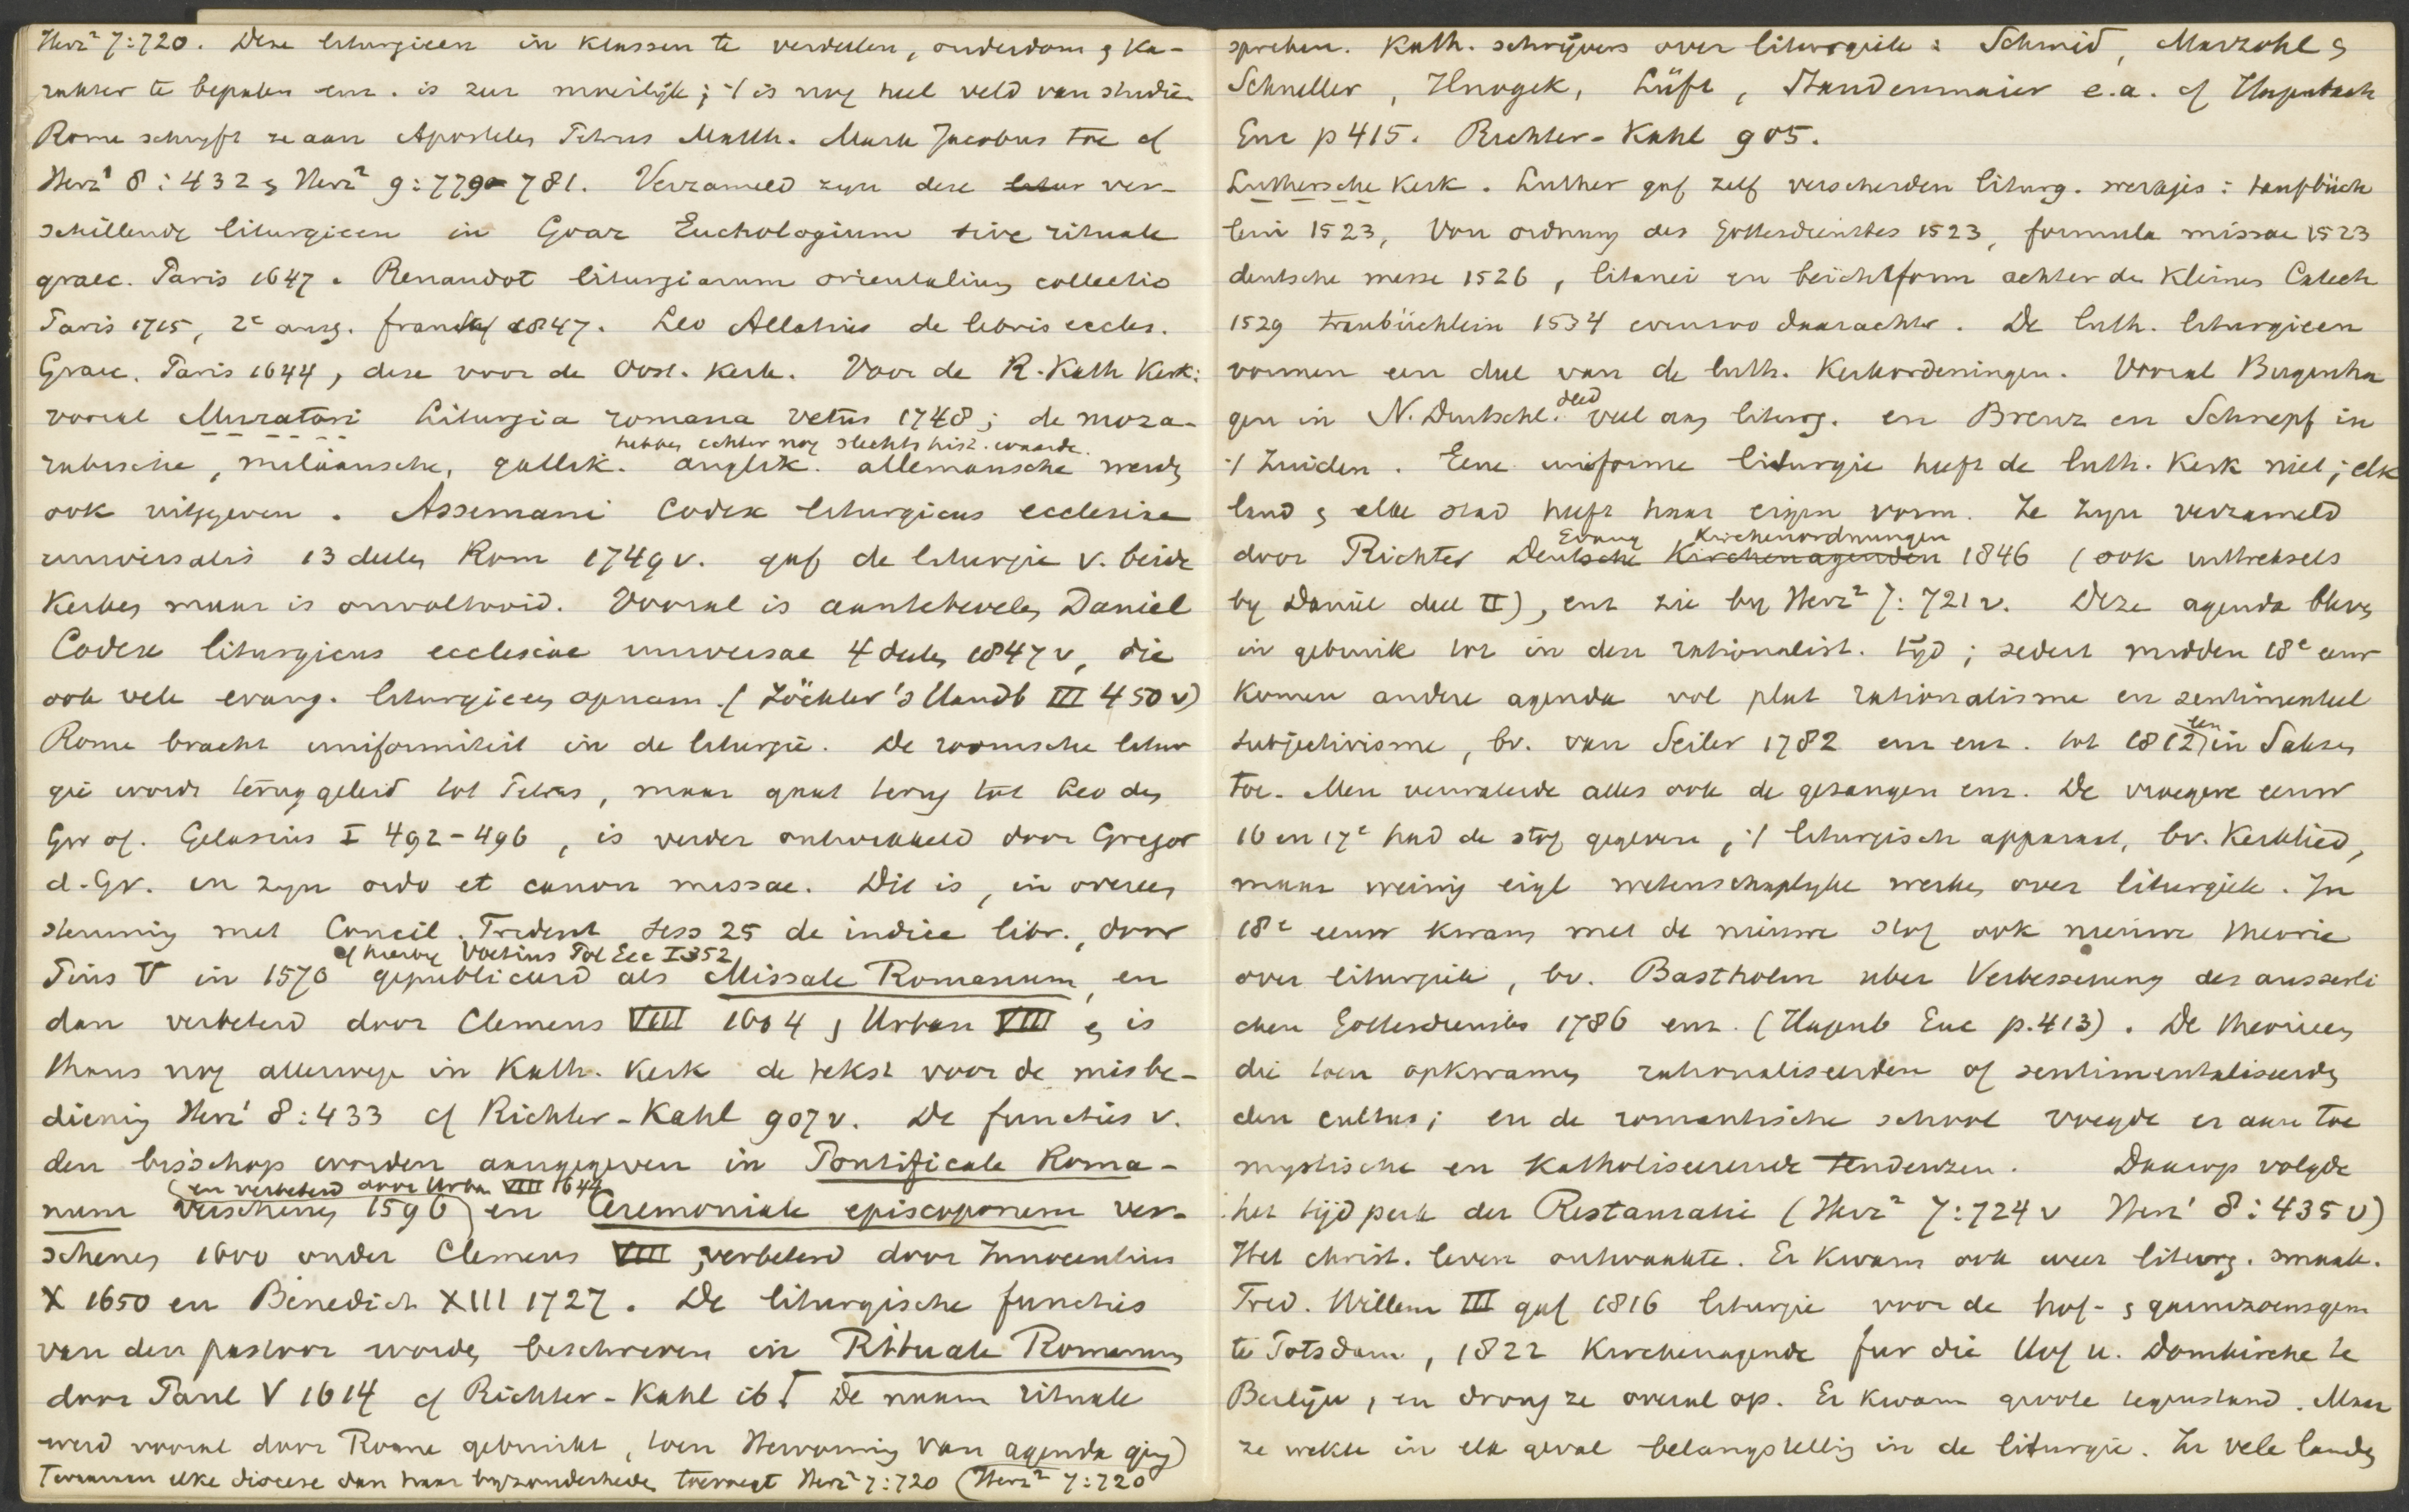 Herz² 7:720. Deze liturgieen in klassen te verdeelen, ouderdom & ka-
rakter te bepalen enz. is zeer moeilijk; 't is nog heel veld van studie
Rome schrijft ze aan Apostelen Petrus Matth. Mark Jacobus toe cf
Herz¹ 8:432 & Herz² 9:779-781. Verzameld zyn deze litur ver-
schillende liturgieen in Goar Euchologium sive rituale
graec. Paris 1647. Renaudot liturgiarum orientalium collectio
Paris 1715, 2e ausg. Frankf 1847. Leo Allatius de libris eccles.
Graec. Paris 1644, deze voor de Oost. kerk. Voor de R. Kath Kerk:
vooral Muratori Liturgia romana vetus 1748; de moza-
hebben echter nog slechts hist. waarde.
rabische, milaansche, gallik. anglik. allemansche werden
ook uitgegeven. Assemani Codex liturgicus ecclesiae
universalis 13 deelen Rom 1749 v. gaf de liturgie v. beide
Kerken maar is onvoltooid. Vooral is aantebevelen Daniel
Codex liturgicus ecclesiae universae 4 deelen 1847 v, die
ook vele evang. liturgieen opnam. (Zöckler's Handb III 450 v)
Rome bracht uniformiteit in de liturgie. De roomsche litur
gie wordt teruggeleid tot Petrus, maar gaat terug tot Leo den
Gr of. Gelasius I 492-496, is verder ontwikkeld door Gregor
d. Gr. in zyn ordo et canon missae. Dit is, in overeen
stemming met Concil. Trident sess 25 de indice libr., door
cf hierby Voetius Pol Ecc I 352
Pius V in 1570 gepubliceerd als Missale Romanum, en
dan verbeterd door Clemens VIII 1604, Urban VIII & is
thans nog allerwege in Kath. Kerk de tekst voor de misbe-
diening Herz¹ 8:433 cf Richter-Kahl 907 v. De functies v.
den bisschop worden aangegeven in Pontificale Roma-
(en verbeterd door Urban VIII 1644
num verschenen 1596) en Ceremoniale episcoporum ver-
schenen 1600 onder Clemens VIII, verbeterd door Innocentius
X 1650 en Benedict XIII 1727. De liturgische functies
van den pastoor worden beschreven in Rituale Romanum
door Paul V 1614 cf Richter-Kahl ib. De naam rituale
werd vooral door Rome gebruikt, toen Hervorming van agenda ging)
Terwijl elke diocese dan haar byzonderheden toevoegt Herz² 7:720 (Herz² 7:720
spreken. Kath. schrijvers over liturgiek: Schmid, Marzohl &
Schneller, Hnogek, Lüft, Staudenmaier e.a. cf Hagenbach
Enc p 415. Richter-Kahl 905.
Luthersche Kerk. Luther gaf zelf verscheiden liturg. werkjes: taufbüch
lein 1523, Von ordnung des Gottesdienstes 1523, formula missae 1523
deutsche messe 1526, litanei en beichtform achter de kleines Catech
1529 traubüchlein 1534 evenzoo daarachter. De luth. liturgieen
vormen een deel van de luth. kerkordeningen. Vooral Bugenha
gen in N. Deutschl. deed veel aan liturg. en Brenz en Schnepf in
't Zuiden. Eene uniforme liturgie heeft de luth. Kerk niet; elk
land & elke stad heeft haar eigen vorm. Ze zyn verzameld
Evang Kirchenordnungen
door Richter Deutsche Kirchenagenden 1846 (ook uittreksels
by Daniel deel II), enz zie by Herz² 7:721 v. Deze agenda bleven
in gebruik tot in den rationalist. tijd; sedert midden 18e eeuw
komen andere agenda vol plat rationalisme en sentimenteel
subjectivisme, bv. van Seiler 1782 enz enz. tot 1812 in Saksen
toe. Men veranderde alles ook de gezangen enz. De vroegere eeuw
16 en 17e had de stof gegeven, 't liturgisch apparaat, bv. Kerklied,
maar weinig eigl wetenschaplyke werken over liturgiek. In
18e eeuw kwam met de nieuwe stof ook nieuwe theorie
over liturgiek, bv. Bastholm uber Verbesserung des ausserli
chen Gottesdienstes 1786 enz. (Hagenb Enc p. 413). De theorieen
die toen opkwamen rationaliseerden of sentimentaliseerden
den cultus; en de romantische school voegde er aan toe
mystische en Katholiseerende tendenzen. Daarop volgde
het tijdperk der Restauratie (Herz² 7:724 v Herz¹ 8:435 v)
Het christ. leven ontwaakte. Er kwam ook weer liturg. smaak.
Fred. Willem III gaf 1816 liturgie voor de hof- & garnizoensgem
te Potsdam, 1822 Kirchenagende fur die Hof u. Domkirche te
Berlijn, en drong ze overal op. Er kwam groote tegenstand. Maar
ze wekte in elk geval belangstelling in de liturgie. In vele landen